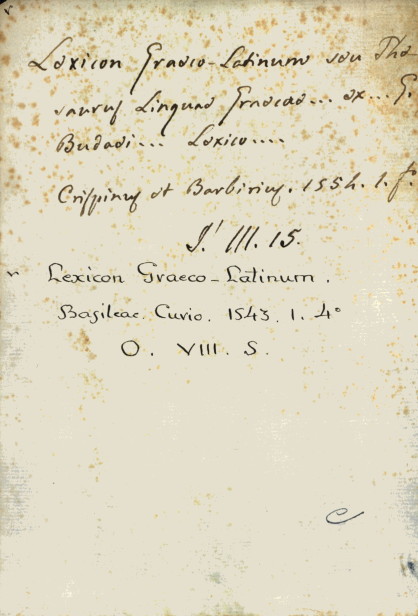 Lexicon Graeco-Latinum seu The-
saurus Linguae Graecae... ex... G.
Budaei... Lexico....
Crispinus et Barbirius. 1554. 1. fo
J! III. 15.
Lexicon Graeco-Latinum.
Basileae. Curio. 1543. 1. 4°
O. VIII. S.